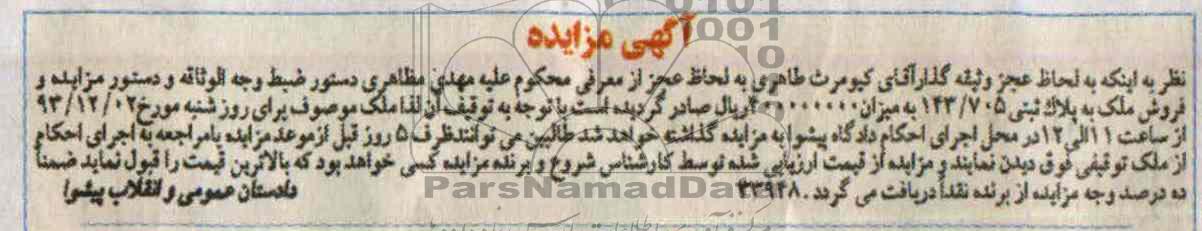 آگهی مزایده
نظر به اینکه به لحاظ عجز وثیقه گذار آقای کیومرث طاهری به لحاظ عجز از معرفی محکوم علیه مهدی مظاهری دستور ضبط وجه الوثاقه و دستور مزایده و
فروش ملک به پلاک ثبتی ۱۴۳/۷۰۵ به میزان ریال صادر گردیده است با توجه به توقیف آن لذا ملک موصوف برای روز شنبه مورخ ۹۳/۱۲/۰۲
از ساعت ۱۱ الی ۱۲ در محل اجرای احکام دادگاه پیشوا به مزایده گذاشته خواهد شد طالبین می توانند ظرف ۵ روز قبل از موعد مزایده بامراجعه به اجرای احکام
از ملک توقیفی فوق دیدن نمایند و مزایده از قیمت ارزیابی شده توسط کارشناس شروع و برنده مزایده کسی خواهد بود که بالاترین قیمت را قبول نماید ضمناً
ده درصد وجه مزایده از برنده نقداً دریافت می گردد. ۳۳۹۴۸
دادستان عمومی و انقلاب پیشوا
ParsNamadData